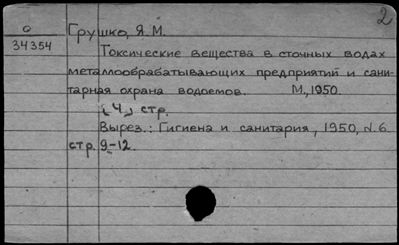 2
О
34354
Грушко, Я. М.
Токсические вещества в сточных водах
металлообрабатывающих предприятий и сани-
тарная охрана водоемов. М., 1950.
[4] стр.
Вырез.: Гигиена и санитария, 1950, №6
стр. 9-12.